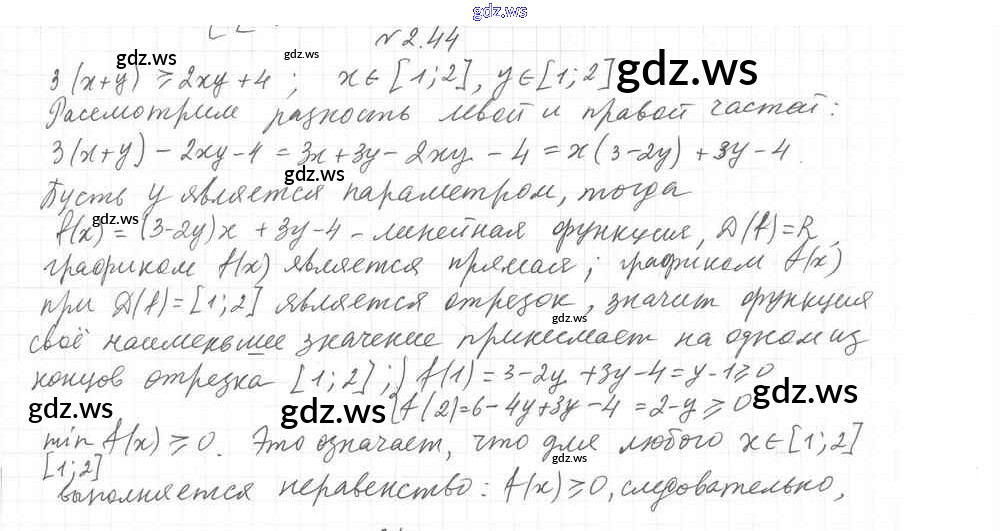 gdz.ws
№2.44
3(x+y) ≥ 2xy+4 ; x∈[1;2], y∈[1;2]
Рассмотрим разность левой и правой частей:
3(x+y) - 2xy-4 = 3x+3y-2xy-4 = x(3-2y)+3y-4.
Пусть y является параметром, тогда
f(x) = (3-2y)x + 3y-4 - линейная функция, D(f)=R,
графиком f(x) является прямая; графиком f(x)
при D(f)=[1;2] является отрезок, значит функция
своё наименьшее значение принимает на одном из
концов отрезка [1;2]; { f(1)=3-2y+3y-4=y-1≥0
f(2)=6-4y+3y-4=2-y≥0
min f(x)≥0. Это означает, что для любого x∈[1;2]
[1;2]
выполняется неравенство: f(x)≥0, следовательно,
gdz.ws
gdz.ws
gdz.ws
gdz.ws
gdz.ws
gdz.ws
gdz.ws
gdz.ws
gdz.ws
gdz.ws